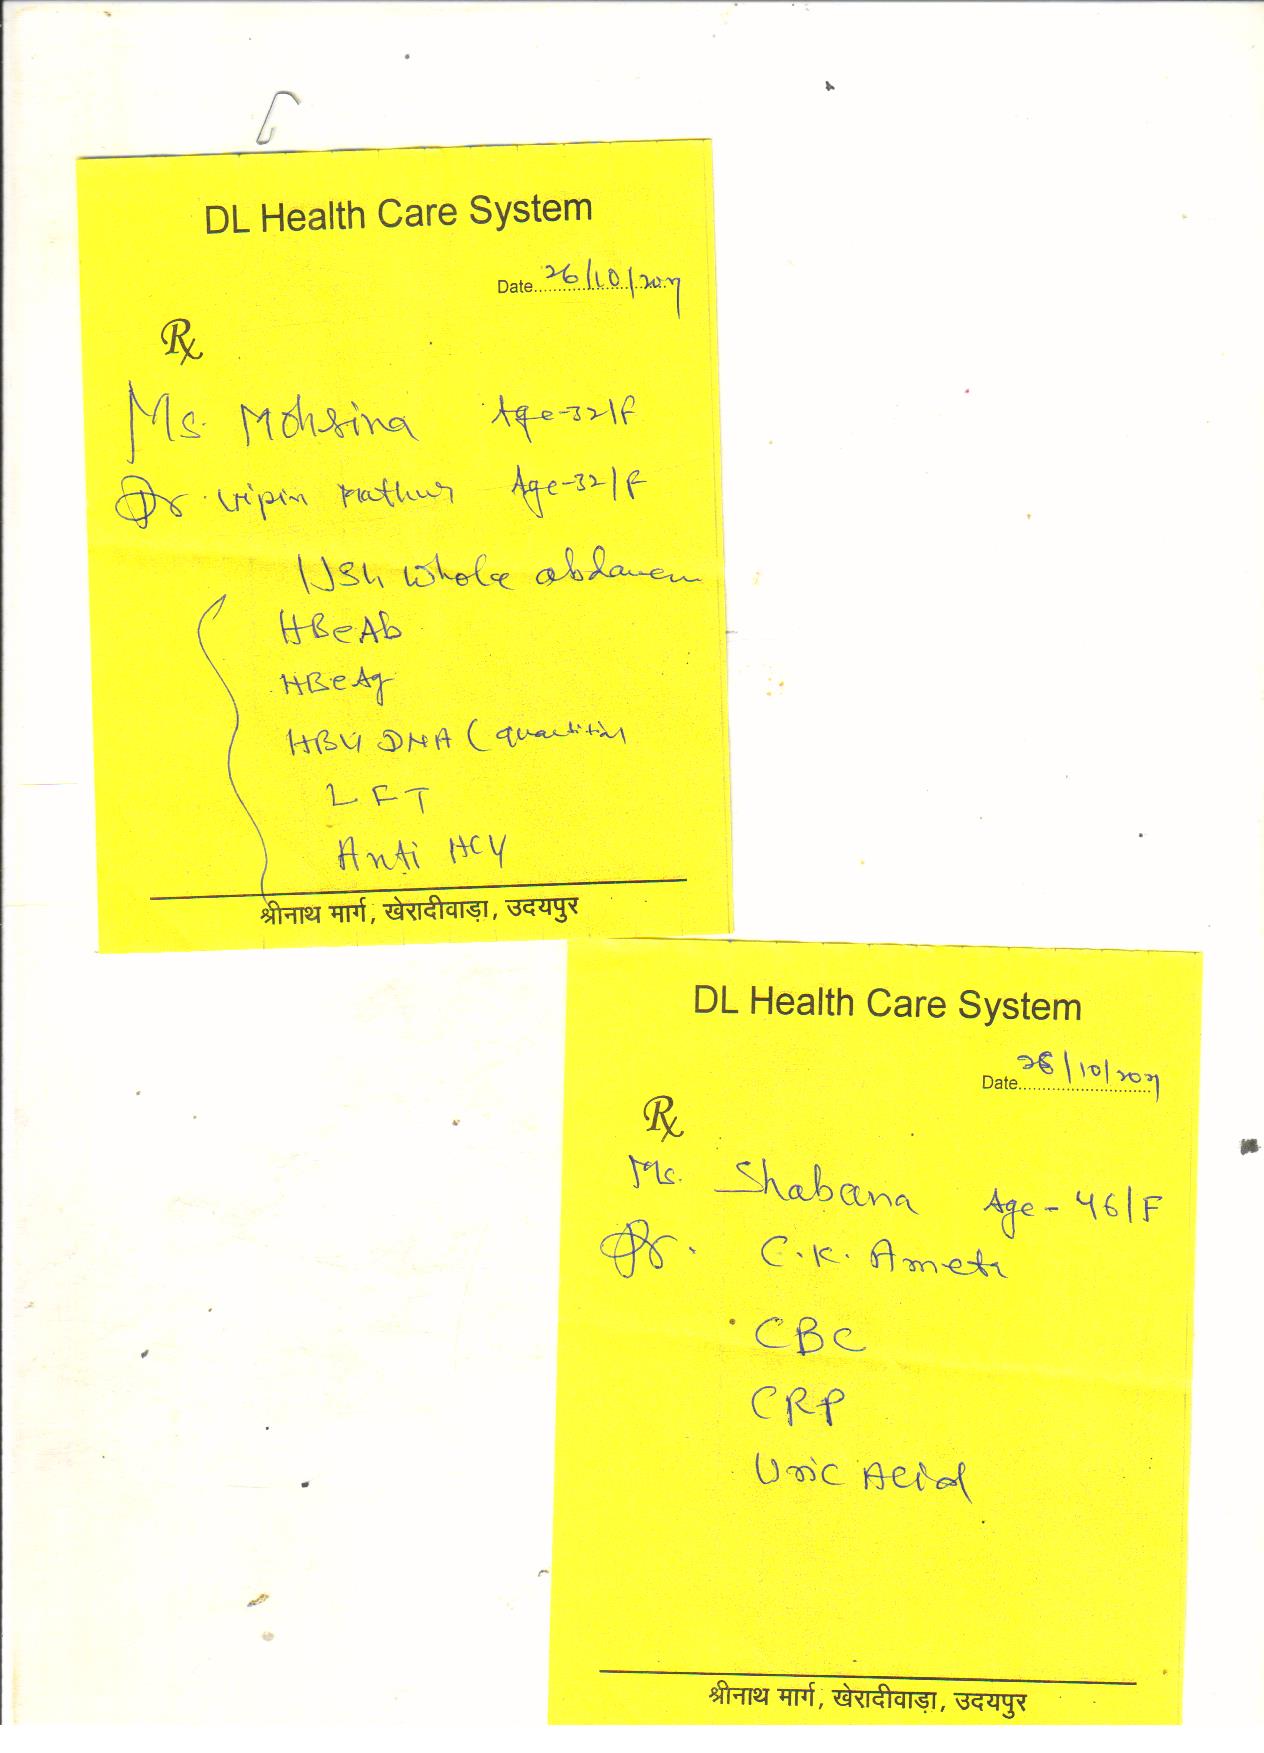 DL Health Care System
Date 26/10/2021
Rx
Ms. Mohsina Age-32/F
Dr. Vipin Mathur Age-32/F
USG Whole abdomen
HBeAb
HBeAg
HBV DNA (
LFT
Anti HCV
श्रीनाथ मार्ग, खेरादीवाड़ा, उदयपुर
DL Health Care System
Date /10/2021
Rx
Ms. Shabana Age-46/F
Dr. C.K. Ameta
CBC
CRP
Uric Acid
श्रीनाथ मार्ग, खेरादीवाड़ा, उदयपुर